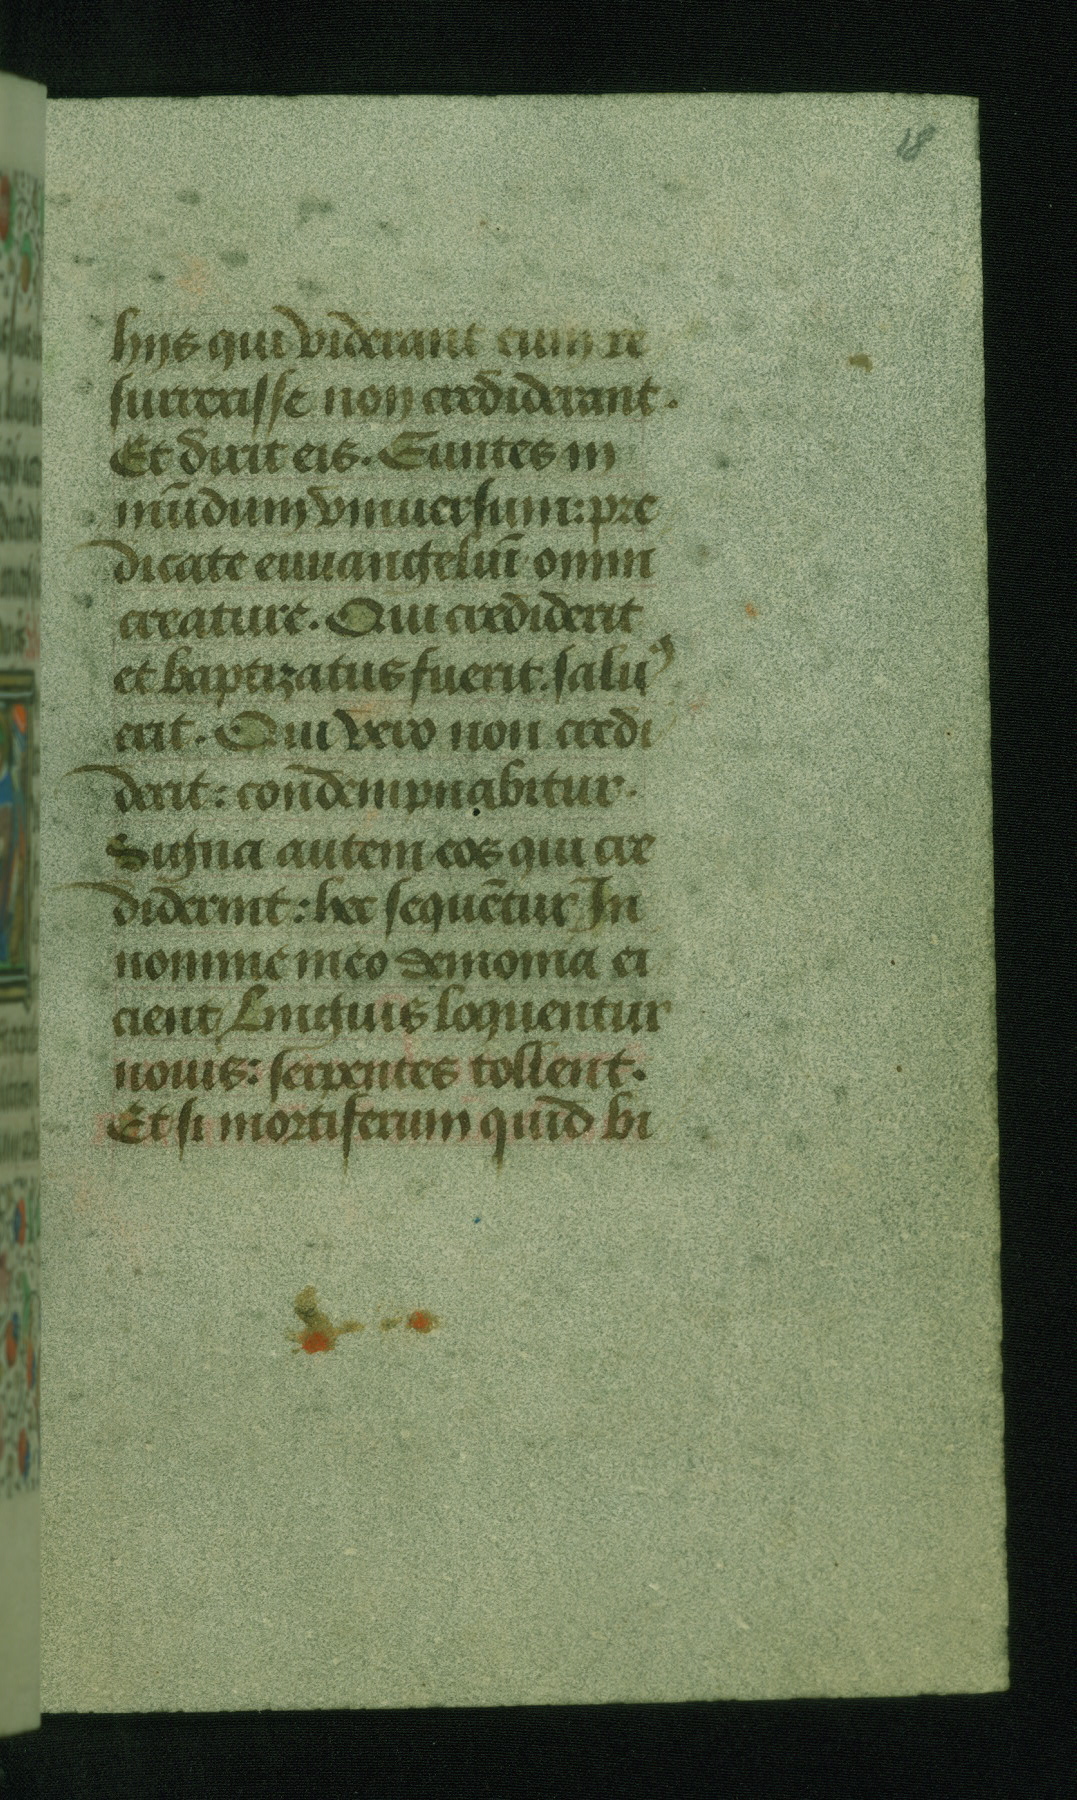 18
hijs qui viderant eum re
surrexisse non crediderant.
Et dixit eis. Euntes in
mūdum vniuersum: pre
dicate euuangeliū omni
creature. Qui crediderit
et baptizatus fuerit. saluꝰ
erit. Qui vero non credi
derit: condempnabitur.
Signa autem eos qui cre
diderint: hec sequētur In
nomine meo demonia ei
cient Linguis loquentur
nouis: serpentes tollent.
Et si mortiferum quid bi